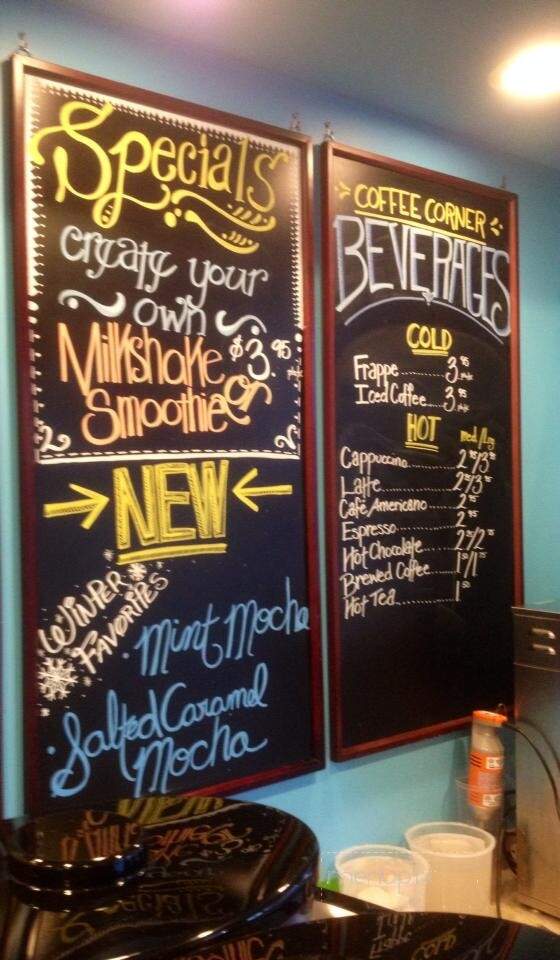 Specials
create your
own
Milkshake $3.95
or
Smoothie
NEW
WINTER
FAVORITES
Mint Mocha
Salted Caramel
Mocha
COFFEE CORNER
BEVERAGES
COLD
Frappe..........3.95
Iced Coffee.....3.95
HOT med/Lrg
Cappuccino
Latte
Café Americano
Espresso
Hot Chocolate
Brewed Coffee
Hot Tea